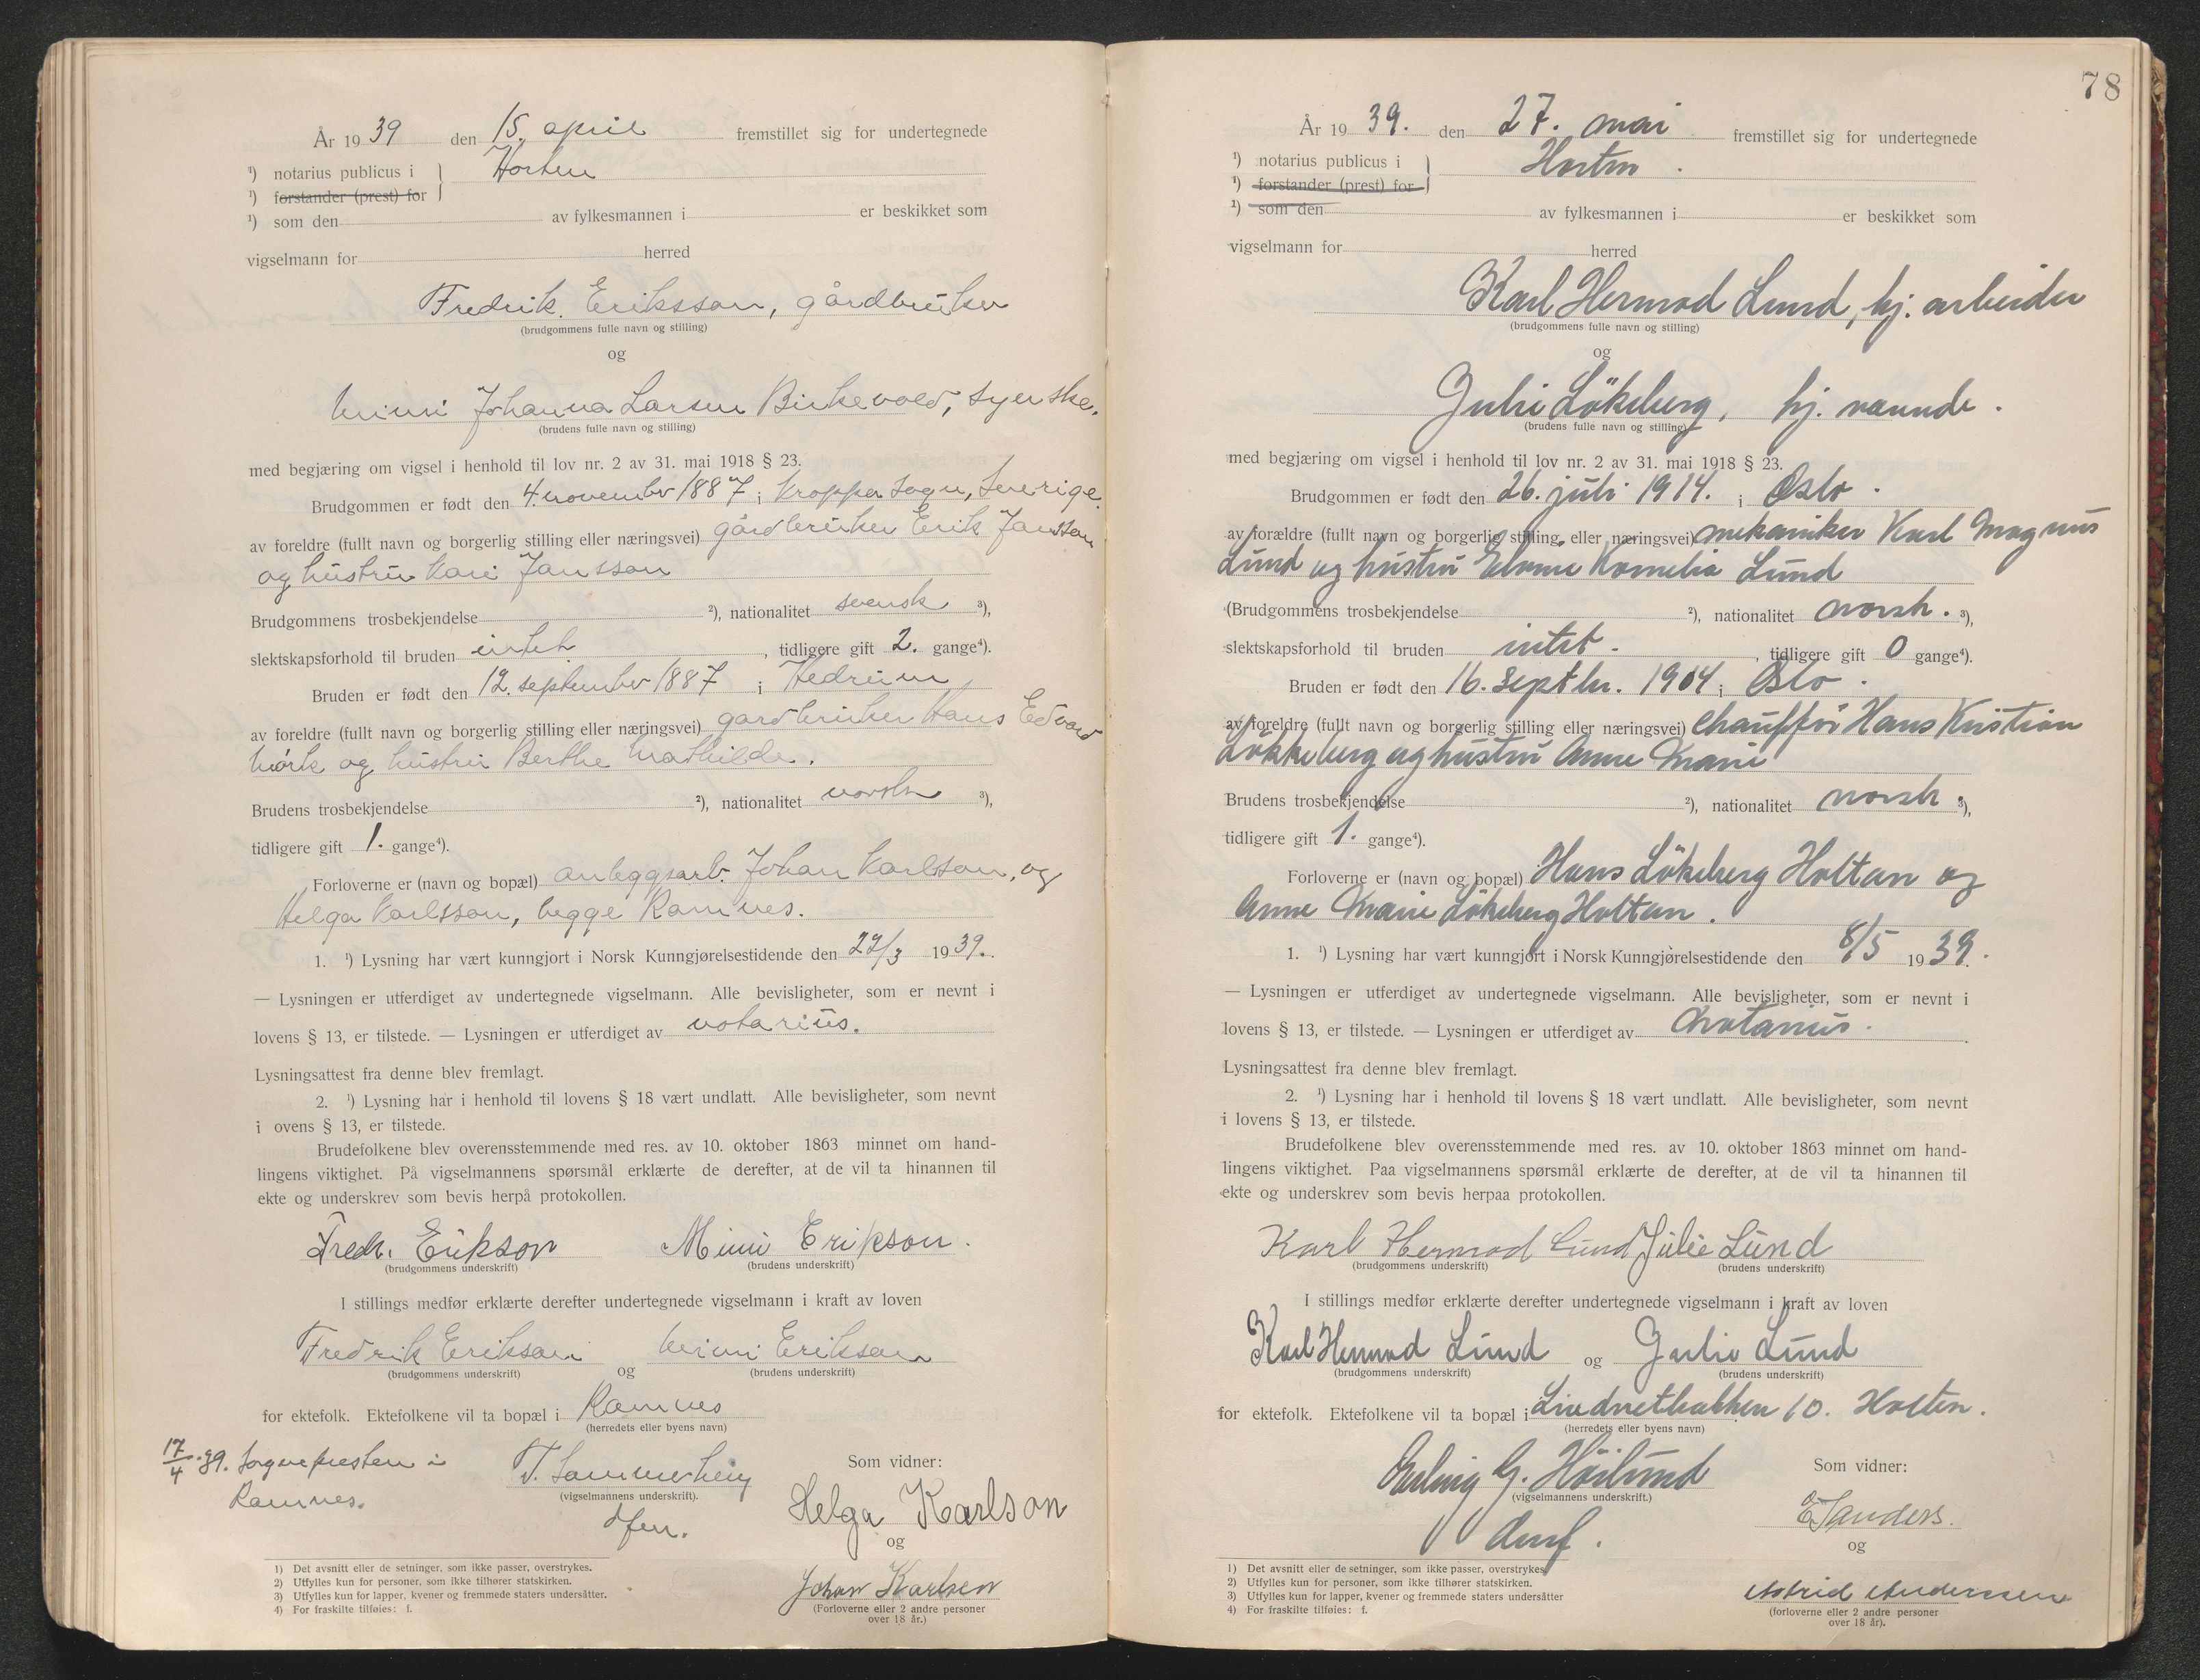 År 19 39 den 15. april fremstillet sig for undertegnede
¹) notarius publicus i Horten
¹) forstander (prest) for
¹) som den av fylkesmannen i er beskikket som
vigselmann for herred
Fredrik Eriksson, gårdbruker
(brudgommens fulle navn og stilling)
og
Mimi Johanna Larsen Birkevold, syerske.
(brudens fulle navn og stilling)
med begjæring om vigsel i henhold til lov nr. 2 av 31. mai 1918 § 23.
Brudgommen er født den 4. november 1887 i Kroppa sogn, Sverige.
av foreldre (fullt navn og borgerlig stilling eller næringsvei) gårdbruker Erik Jansson
og hustru Kari Jansson
Brudgommens trosbekjendelse ²), nationalitet svensk ³),
slektskapsforhold til bruden intet, tidligere gift 2. gange⁴).
Bruden er født den 12. september 1887 i Hedrum
av foreldre (fullt navn og borgerlig stilling eller næringsvei) gardbruker Hans Edvard
Mørk og hustru Berthe Mathilde.
Brudens trosbekjendelse ²), nationalitet norsk ³),
tidligere gift 1. gange⁴).
Forloverne er (navn og bopæl) anleggsarb. Johan Karlsson, og
Helga Karlsson, begge Ramnes.
1. ¹) Lysning har vært kunngjort i Norsk Kunngjørelsestidende den 29/3 1939.
— Lysningen er utferdiget av undertegnede vigselmann. Alle bevisligheter, som er nevnt i
lovens § 13, er tilstede. — Lysningen er utferdiget av notarius.
Lysningsattest fra denne blev fremlagt.
2. ¹) Lysning har i henhold til lovens § 18 vært undlatt. Alle bevisligheter, som nevnt
i ovens § 13, er tilstede.
Brudefolkene blev overensstemmende med res. av 10. oktober 1863 minnet om hand-
lingens viktighet. På vigselmannens spørsmål erklærte de derefter, at de vil ta hinannen til
ekte og underskrev som bevis herpå protokollen.
Fredr. Erikson Mimi Erikson.
(brudgommens underskrift) (brudens underskrift)
I stillings medfør erklærte derefter undertegnede vigselmann i kraft av loven
Fredrik Eriksson og Mimi Eriksson
(brudgommens underskrift) (brudens underskrift)
for ektefolk. Ektefolkene vil ta bopæl i Ramnes
(herredets eller byens navn)
17/4.39. Sognepresten i
Ramnes.
(vigselmannens underskrift).
Som vidner:
Helga Karlson
og
Johan Karlsen
(Forloverne eller 2 andre personer
over 18 år.)
1) Det avsnitt eller de setninger, som ikke passer, overstrykes.
2) Utfylles kun for personer, som ikke tilhører statskirken.
3) Utfylles kun for lapper, kvener og fremmede staters undersåtter.
4) For fraskilte tilføies: f.
78
År 19 39. den 27. mai fremstillet sig for undertegnede
¹) notarius publicus i Horten.
¹) forstander (prest) for
¹) som den av fylkesmannen i er beskikket som
vigselmann for herred
Karl Hermod Lund, hj. arbeider
(brudgommens fulle navn og stilling)
og
Julie Lökeberg, hj. værende.
(brudens fulle navn og stilling)
med begjæring om vigsel i henhold til lov nr. 2 av 31. mai 1918 § 23.
Brudgommen er født den 26. juli 1914. i Oslo.
av forældre (fullt navn og borgerlig stilling eller næringsvei) mekaniker Karl Magnus
Lund og hustru Kornelia Lund
(Brudgommens trosbekjendelse ²), nationalitet norsk. ³),
slektskapsforhold til bruden intet., tidligere gift 0 gange⁴).
Bruden er født den 16. septbr. 1904 i Oslo.
av foreldre (fullt navn og borgerlig stilling eller næringsvei) chauffør Hans Kristian
Løkkeberg og hustru Anne Marie
Brudens trosbekjendelse ²), nationalitet norsk. ³),
tidligere gift 1. gange⁴).
Forloverne er (navn og bopæl) Hans Lökeberg Holtan og
Anne Marie Lökeberg Holtan.
1. ¹) Lysning har vært kunngjort i Norsk Kunngjørelsestidende den 8/5 1939.
— Lysningen er utferdiget av undertegnede vigselmann. Alle bevisligheter, som er nevnt i
lovens § 13, er tilstede. — Lysningen er utferdiget av Notarius.
Lysningsattest fra denne blev fremlagt.
2. ¹) Lysning har i henhold til lovens § 18 vært undlatt. Alle bevisligheter, som nevnt
i lovens § 13, er tilstede.
Brudefolkene blev overensstemmende med res. av 10. oktober 1863 minnet om hand-
lingens viktighet. Paa vigselmannens spørsmål erklærte de derefter, at de vil ta hinannen til
ekte og underskrev som bevis herpaa protokollen.
Karl Hermod Lund Julie Lund
(brudgommens underskrift) (brudens underskrift)
I stillings medfør erklærte derefter undertegnede vigselmann i kraft av loven
Karl Hermod Lund og Julie Lund
(brudgommens underskrift) (brudens underskrift)
for ektefolk. Ektefolkene vil ta bopæl i 10. Horten.
(herredets eller byens navn)
Erling G. Höilund
(vigselmannens underskrift.)
Som vidner:
og
Astrid Anderssen
(forloverne eller 2 andre personer
over 18 år).
1) Det avsnitt eller de setninger, som ikke passer, overstrykes
2) Utfylles kun for personer, som ikke tilhører statskirken.
3) Utfylles kun for lapper, kvener og fremmede staters undersåtter
4) For fraskilte tilføies: f.